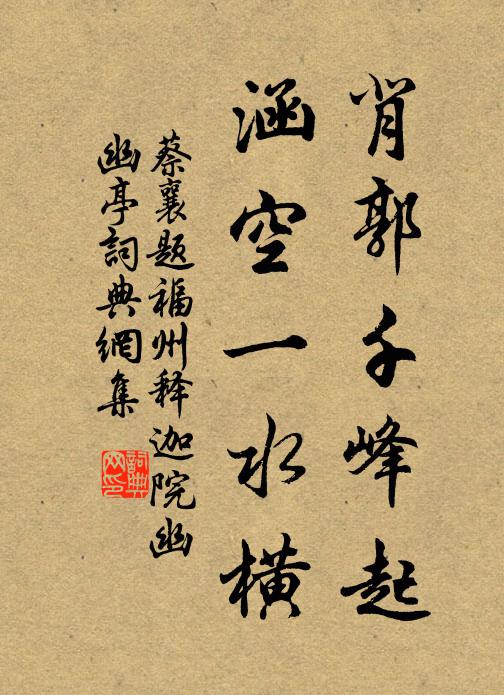 肖郭千峰起
涵空一水横
蔡襄题福州释迦院幽
幽亭詞典網集
詞典网印